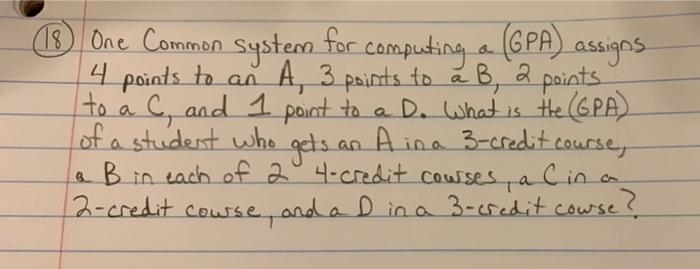 (18) One Common system for computing a (GPA) assigns
4 points to an A, 3 points to a B, 2 points
to a C, and 1 point to a D. What is the (GPA)
of a student who gets an A in a 3-credit course,
a B in each of 2 4-credit courses, a C in a
2-credit course, and a D in a 3-credit course?